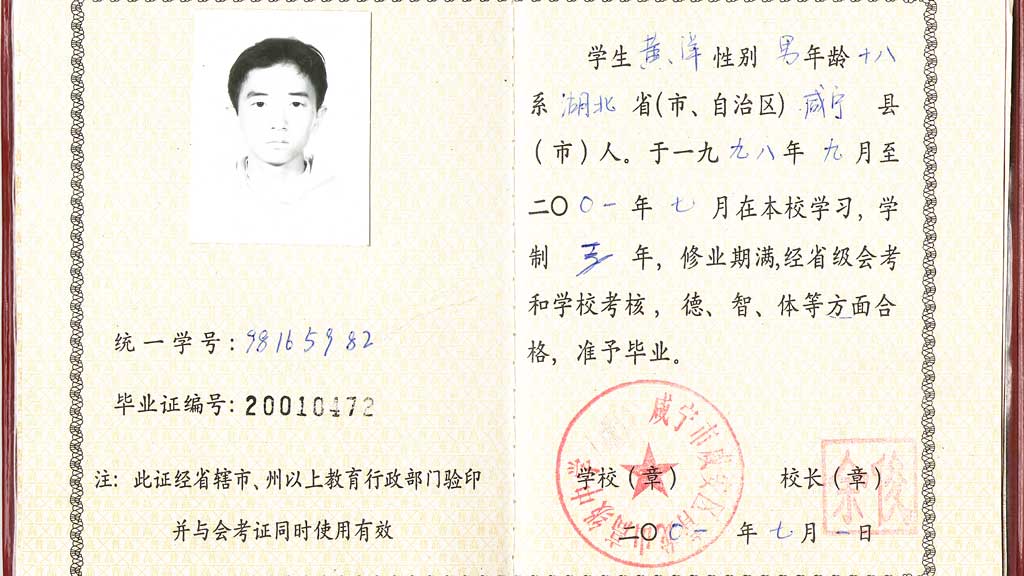 统一学号:98165982
毕业证编号:20010472
注: 此证经省辖市、州以上教育行政部门验印
并与会考证同时使用有效
学生 黄洋 性别 男 年龄 十八
系 湖北 省(市、自治区) 咸宁 县
(市)人。于一九 九八 年 九 月至
二〇 〇一 年 七 月在本校学习, 学
制 三 年, 修业期满,经省级会考
和学校考核, 德、智、体等方面合
格, 准予毕业。
咸宁市咸安区
学校(章)
校长(章)
二〇〇一 年 七月 一日